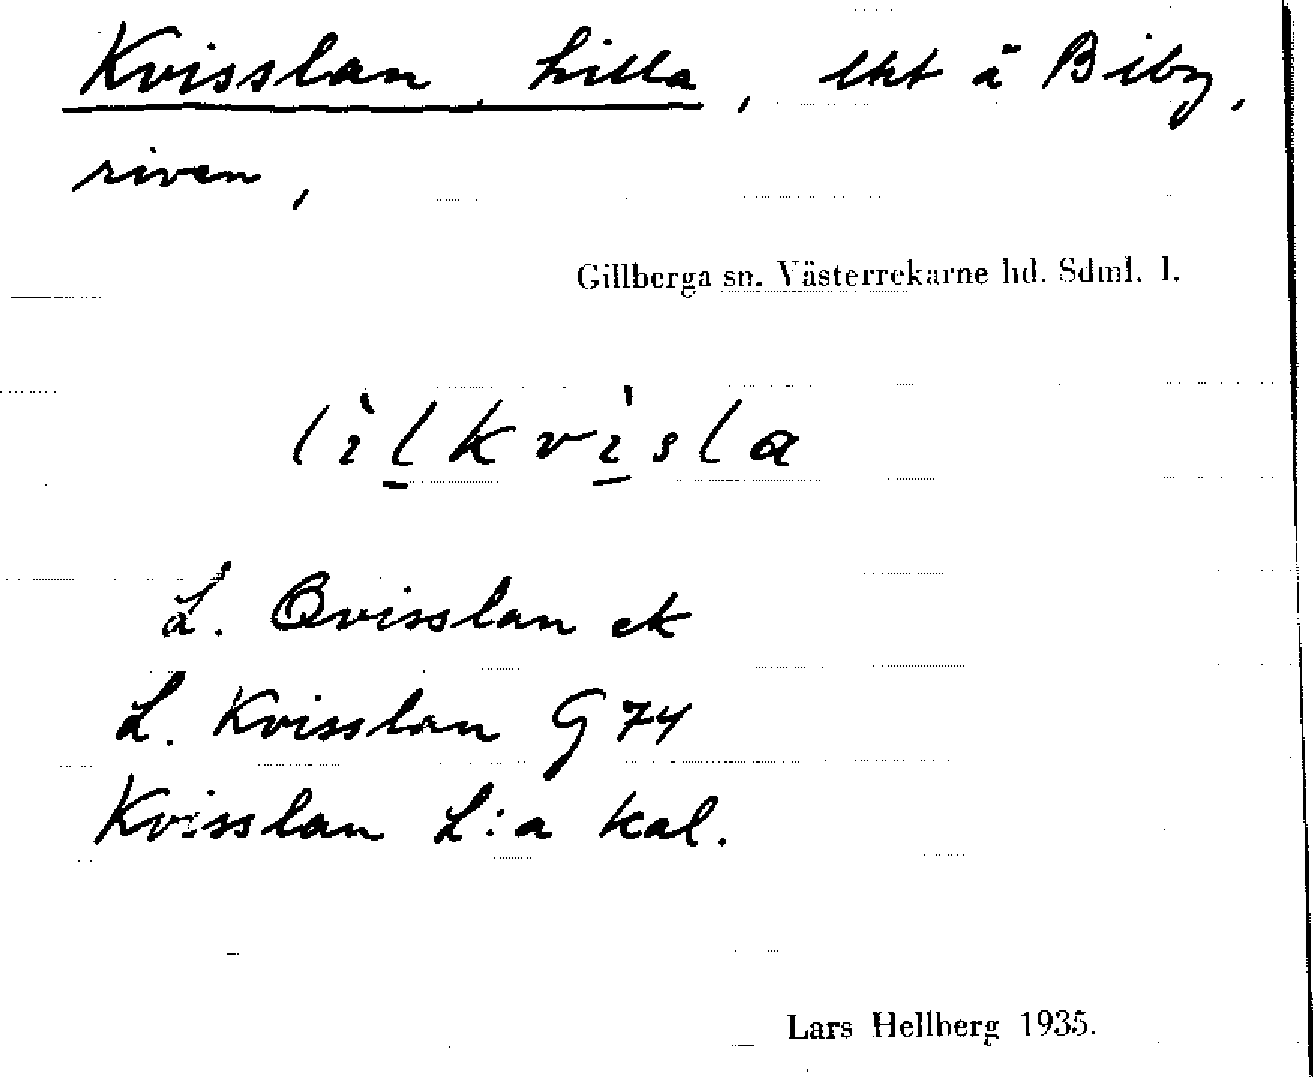 Kvisslan, Lilla, lht å Biby,
riven,
Gillberga sn. Västerrekarne hd. Sdml. l.
lìlkvìsla
L. Qvisslan ek
L. Kvisslan G 74
Kvisslan L:a kal.
Lars Hellberg 1935.